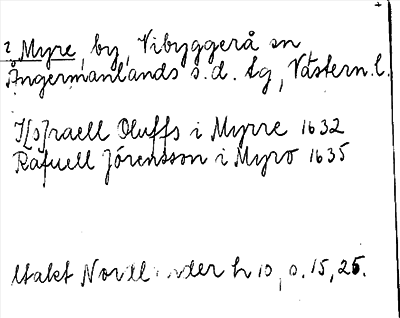 2 Myre, by, Vibyggerå sn
Ångermanlands s.d. tg, Västern.l.
I[s]raell Oluffs i Myrre 1632
Rafuell Jörensson i Myro 1635
Utakt Nordlander h 10, s. 15, 25.